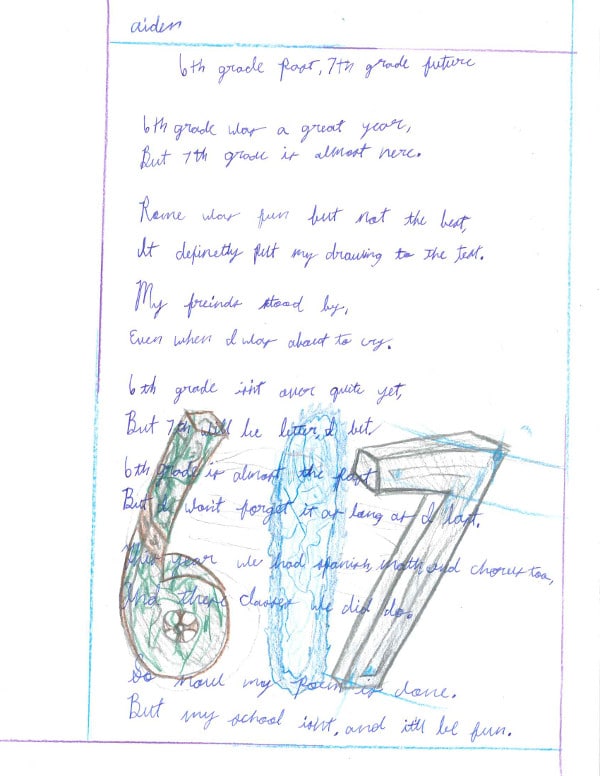 aiden
6th grade past, 7th grade future
6th grade was a great year,
But 7th grade is almost here.
Rome was fun but not the best,
It definetly put my drawing to the test.
My freinds stood by,
Even when I was about to cry.
6th grade isnt over quite yet,
But 7th will be better, I bet,
6th grade is almost the past
But I wont forget it as long as I last.
This year we had spanish, math, and chorus too,
And these classes we did do.
So now my poem is done.
But my school isnt, and itll be fun.
6 7